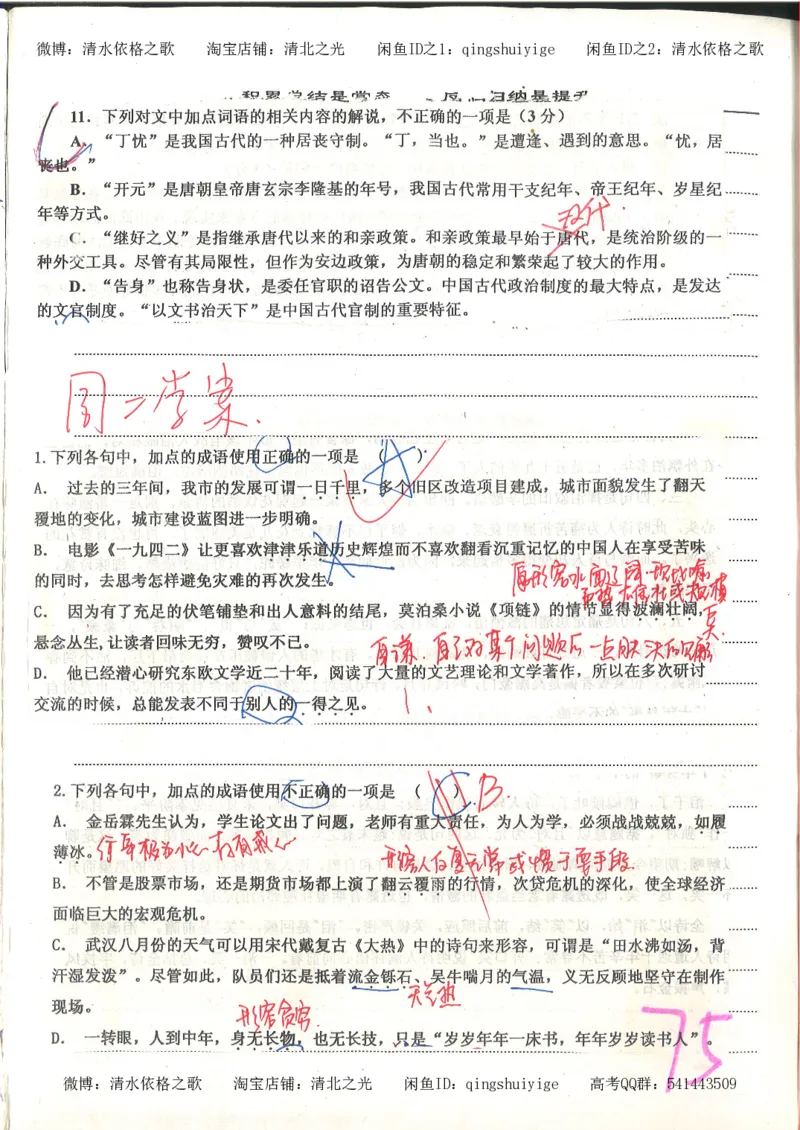 微博：清水依格之歌 淘宝店铺：清北之光 闲鱼ID之1：qingshuiyige 闲鱼ID之2：清水依格之歌
11．下列对文中加点词语的相关内容的解说，不正确的一项是（3分）
A．“丁忧”是我国古代的一种居丧守制。“丁，当也。”是遭逢、遇到的意思。“忧，居
丧也。”
B．“开元”是唐朝皇帝唐玄宗李隆基的年号，我国古代常用干支纪年、帝王纪年、岁星纪
年等方式。
汉代.
C．“继好之义”是指继承唐代以来的和亲政策。和亲政策最早始于唐代，是统治阶级的一
种外交工具。尽管有其局限性，但作为安边政策，为唐朝的稳定和繁荣起了较大的作用。
D．“告身”也称告身状，是委任官职的诏告公文。中国古代政治制度的最大特点，是发达
的文官制度。“以文书治天下”是中国古代官制的重要特征。
周二学案.
1.下列各句中，加点的成语使用正确的一项是（A）
A． 过去的三年间，我市的发展可谓一日千里，多个旧区改造项目建成，城市面貌发生了翻天
覆地的变化，城市建设蓝图进一步明确。
B． 电影《一九四二》让更喜欢津津乐道历史辉煌而不喜欢翻看沉重记忆的中国人在享受苦味
的同时，去思考怎样避免灾难的再次发生。
C． 因为有了充足的伏笔铺垫和出人意料的结尾，莫泊桑小说《项链》的情节显得波澜壮阔，
悬念丛生,让读者回味无穷，赞叹不已。
D． 他已经潜心研究东欧文学近二十年，阅读了大量的文艺理论和文学著作，所以在多次研讨
交流的时候，总能发表不同于别人的一得之见。
2.下列各句中，加点的成语使用不正确的一项是 （C） B.
A． 金岳霖先生认为，学生论文出了问题，老师有重大责任，为人为学，必须战战兢兢，如履
薄冰。
B． 不管是股票市场，还是期货市场都上演了翻云覆雨的行情，次贷危机的深化，使全球经济
面临巨大的宏观危机。
C． 武汉八月份的天气可以用宋代戴复古《大热》中的诗句来形容，可谓是“田水沸如汤，背
汗湿发泼”。尽管如此，队员们还是抵着流金铄石、吴牛喘月的气温，义无反顾地坚守在制作
现场。
天气热
形容贫穷.
D． 一转眼，人到中年，身无长物，也无长技，只是“岁岁年年一床书，年年岁岁读书人”。
75
微博：清水依格之歌 淘宝店铺：清北之光 闲鱼ID：qingshuiyige 高考QQ群：541443509